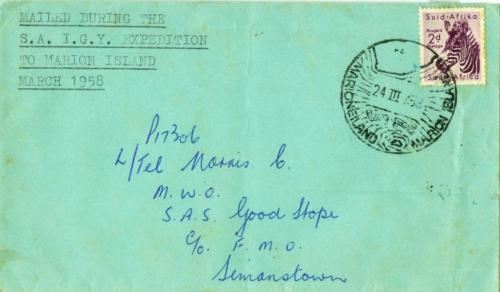 MAILED DURING THE
S.A. I.G.Y. EXPEDITION
TO MARION ISLAND
MARCH 1958
Suid-Afrika
2d
South Africa
MARIONEILAND
24 III 1958
MARION ISLAND
P17306
L/Tel Morris C.
M.W.O.
S.A.S. Good Hope
C/o F.M.O.
Simanstown